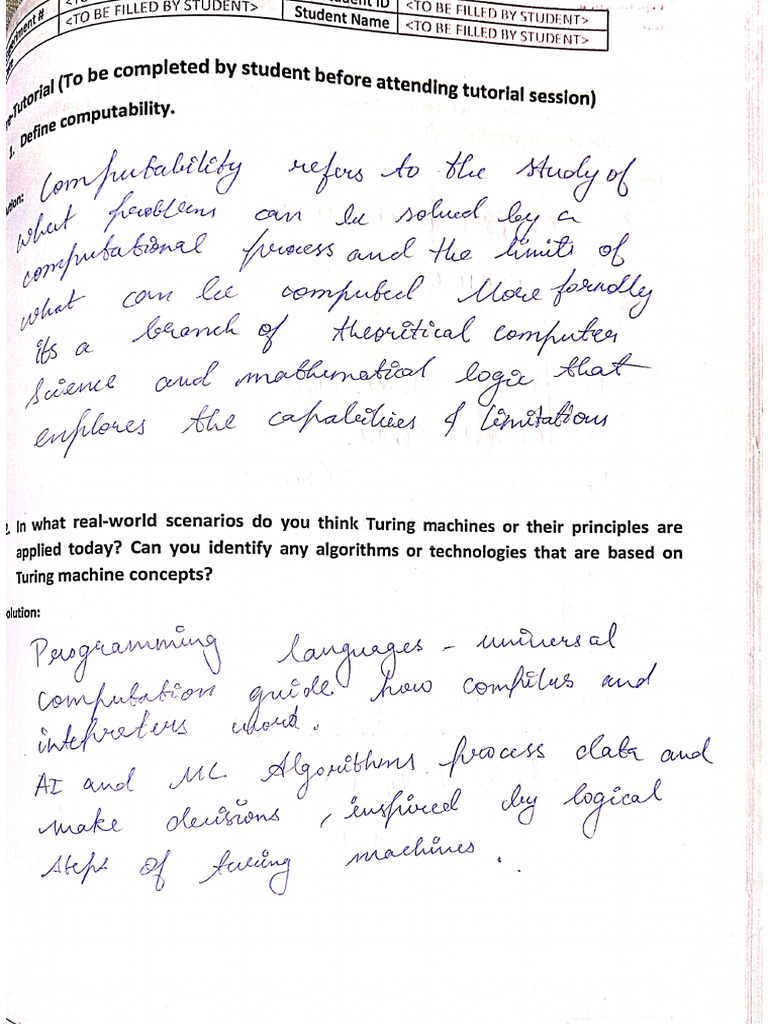 <TO BE FILLED BY STUDENT>
Student Name
<TO BE FILLED BY STUDENT>
<TO BE FILLED BY STUDENT>
-Tutorial (To be completed by student before attending tutorial session)
1. Define computability.
Computability refers to the study of
what problems can be solved by a
computational process and the limits of
what can be computed More formally
its a branch of theoritical computer
science and mathematical logic that
explores the capabilities & limitations
2. In what real-world scenarios do you think Turing machines or their principles are
applied today? Can you identify any algorithms or technologies that are based on
Turing machine concepts?
olution:
Programming languages - universal
computation guide how compilers and
intepreters word.
AI and ML Algorithms process data and
make decisions, inspired by logical
steps of turing machines.